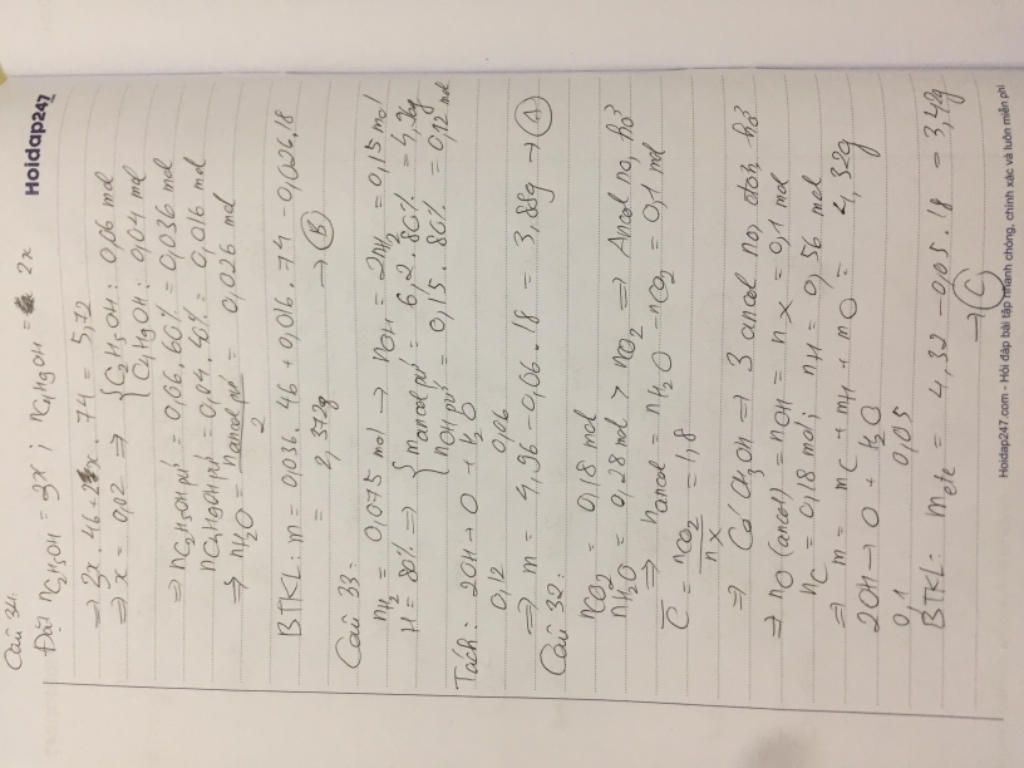 Hoidap247
Câu 34:
Đặt nC2H5OH = 3x ; nC4H9OH = 2x
⇒ 3x . 46 + 2x . 74 = 5,72
⇒ x = 0,02 ⇒ { C2H5OH : 0,06 mol
C4H9OH : 0,04 mol
⇒ nC2H5OH pứ = 0,06 . 60% = 0,036 mol
nC4H9OH pứ = 0,04 . 40% = 0,016 mol
⇒ nH2O = nancol pứ / 2 = 0,026 mol
BTKL : m = 0,036 . 46 + 0,016 . 74 - 0,026 . 18
= 2,372g → (B)
Câu 33:
nH2 = 0,075 mol → nOH = 2nH2 = 0,15 mol
H = 80% ⇒ { mancol pứ = 6,2 . 80% = 4,96g
nOH pứ = 0,15 . 80% = 0,12 mol
Tách : 2OH → O + H2O
0,12 0,06
⇒ m = 4,96 - 0,06 . 18 = 3,88g → (A)
Câu 32:
nCO2 = 0,18 mol
nH2O = 0,28 mol > nCO2 ⇒ Ancol no, hở
⇒ nancol = nH2O - nCO2 = 0,1 mol
C̅ = nCO2 / nX = 1,8
⇒ Có CH3OH ⇒ 3 ancol no, đơn, hở
⇒ nO (ancol) = nOH = nX = 0,1 mol
nC = 0,18 mol ; nH = 0,56 mol
⇒ m = mC + mH + mO = 4,32g
2OH → O + H2O
0,1 0,05
BTKL : mete = 4,32 - 0,05 . 18 = 3,42g
→ (C)
Hoidap247.com - Hỏi đáp bài tập nhanh chóng, chính xác và luôn miễn phí